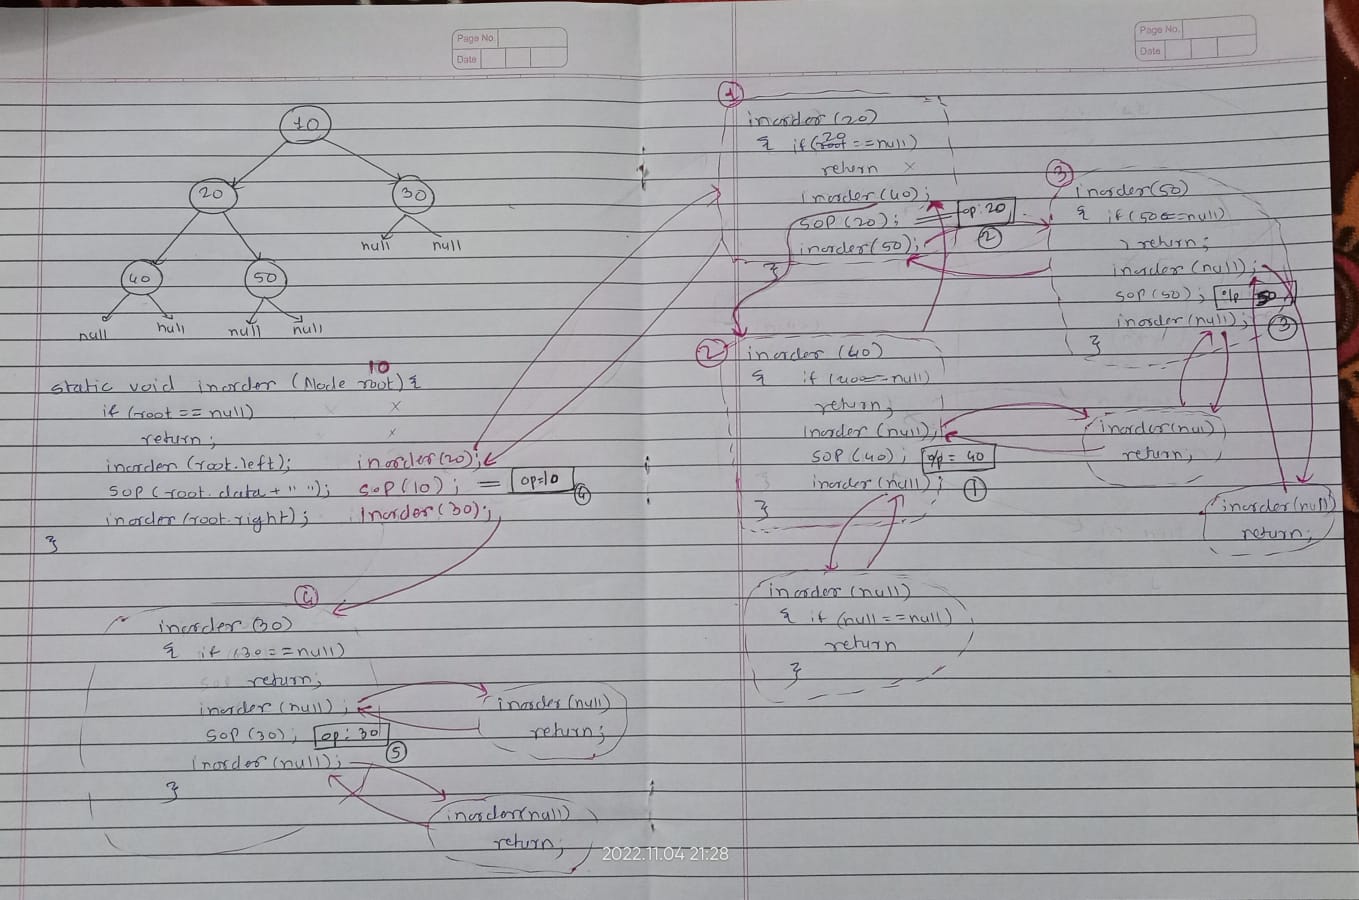 Page No.
Date
10
20
30
null
null
40
50
null
null
null
null
10
static void inorder (Node root) {
if (root == null) x
return; x
inorder (root.left); inorder(20);
SOP (root.data + " "); SOP(10); = op=10
4
inorder (root.right); Inorder(30);
}
4
inorder (30)
{ if (30 == null)
return;
inorder (null);
SOP (30); op: 30
5
inorder (null);
}
inorder (null)
return;
inorder(null)
return;
Page No.
Date
1
inorder (20)
{ if (20 == null)
return x
inorder (40);
SOP (20); = op: 20
2
inorder (50);
}
3
inorder (50)
{ if (50 == null)
return;
inorder (null);
SOP (50); o/p 50
inorder (null);
3
}
2
inorder (40)
{ if (40 == null)
return;
inorder (null);
SOP (40); o/p = 40
inorder (null);
1
}
inorder(nul)
return;
inorder(null)
return;
inorder (null)
{ if (null == null)
return
}
2022.11.04 21:28